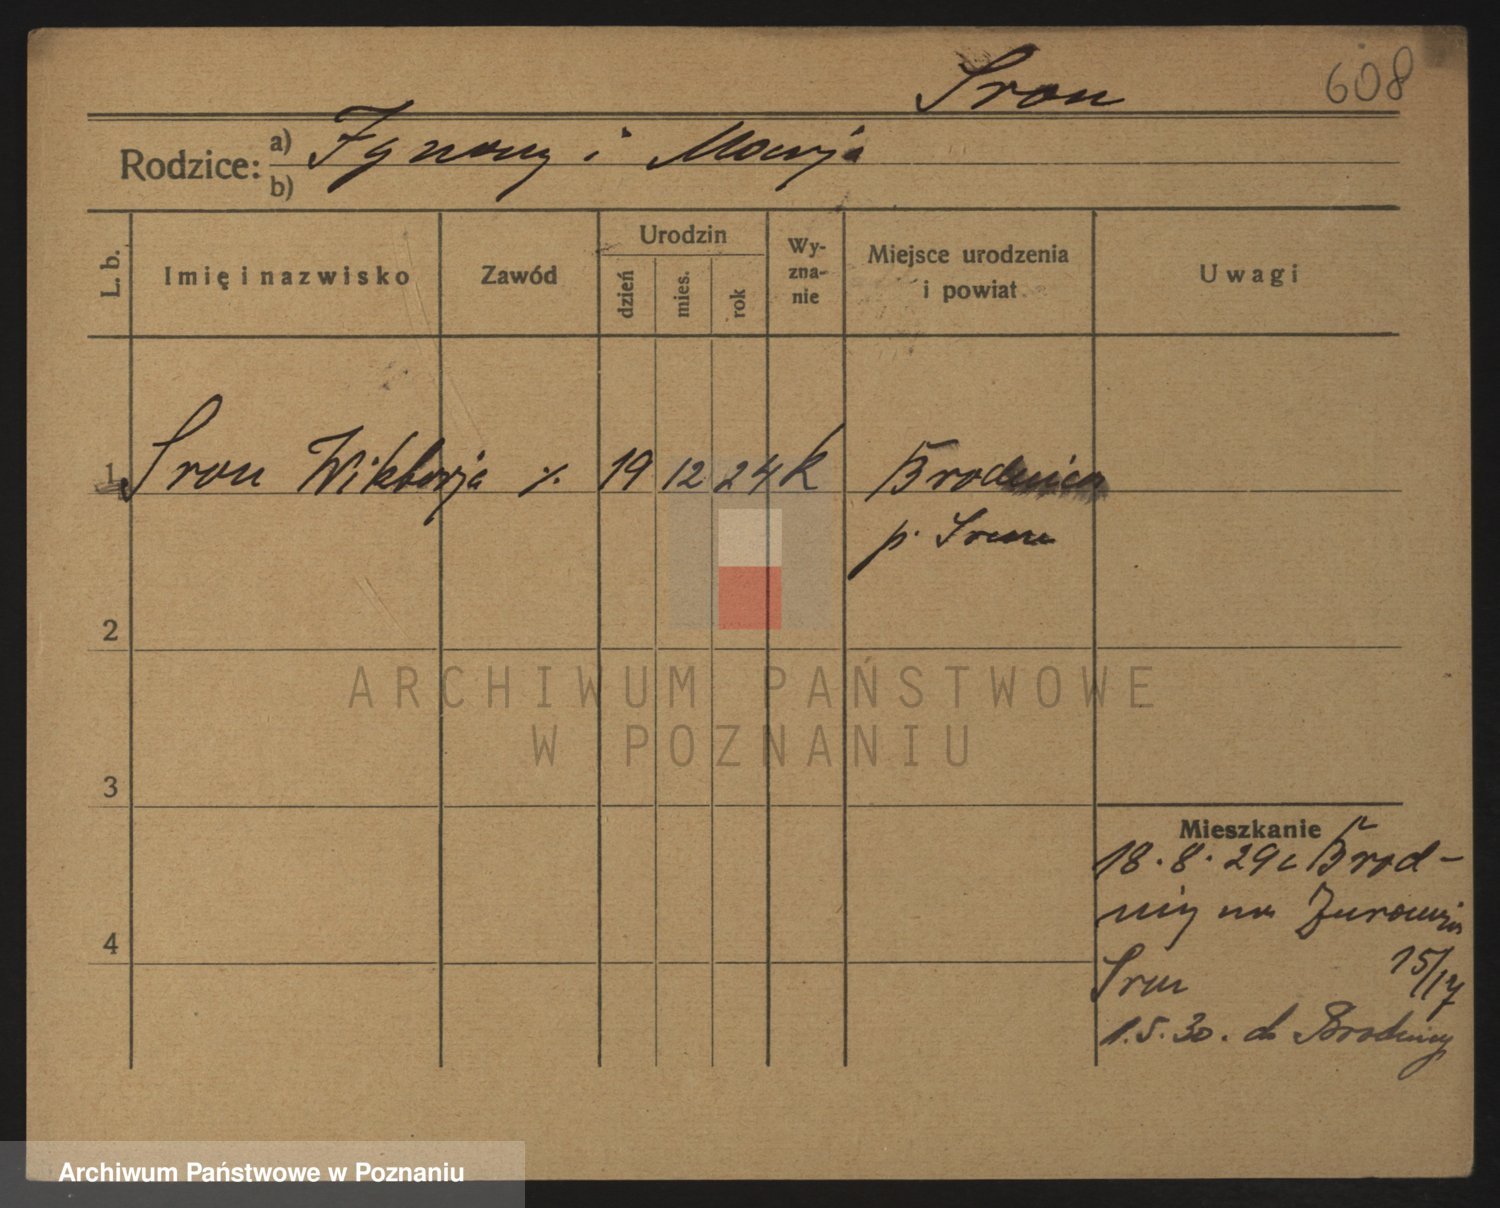 Sron 608
Rodzice: a) Ignacy i Marja
b)
L. b. Imię i nazwisko Zawód Urodzin dzień mies. rok Wy-zna-nie Miejsce urodzenia i powiat Uwagi
1 Sron Wiktorja ./. 19 12 24 k Brodnica
p. Srem
2
ARCHIWUM PAŃSTWOWE
W POZNANIU
3
Mieszkanie
18.8.29 z Brod-
nicy na
4
Sron 15/17
1.5.30. do Brodnicy
Archiwum Państwowe w Poznaniu